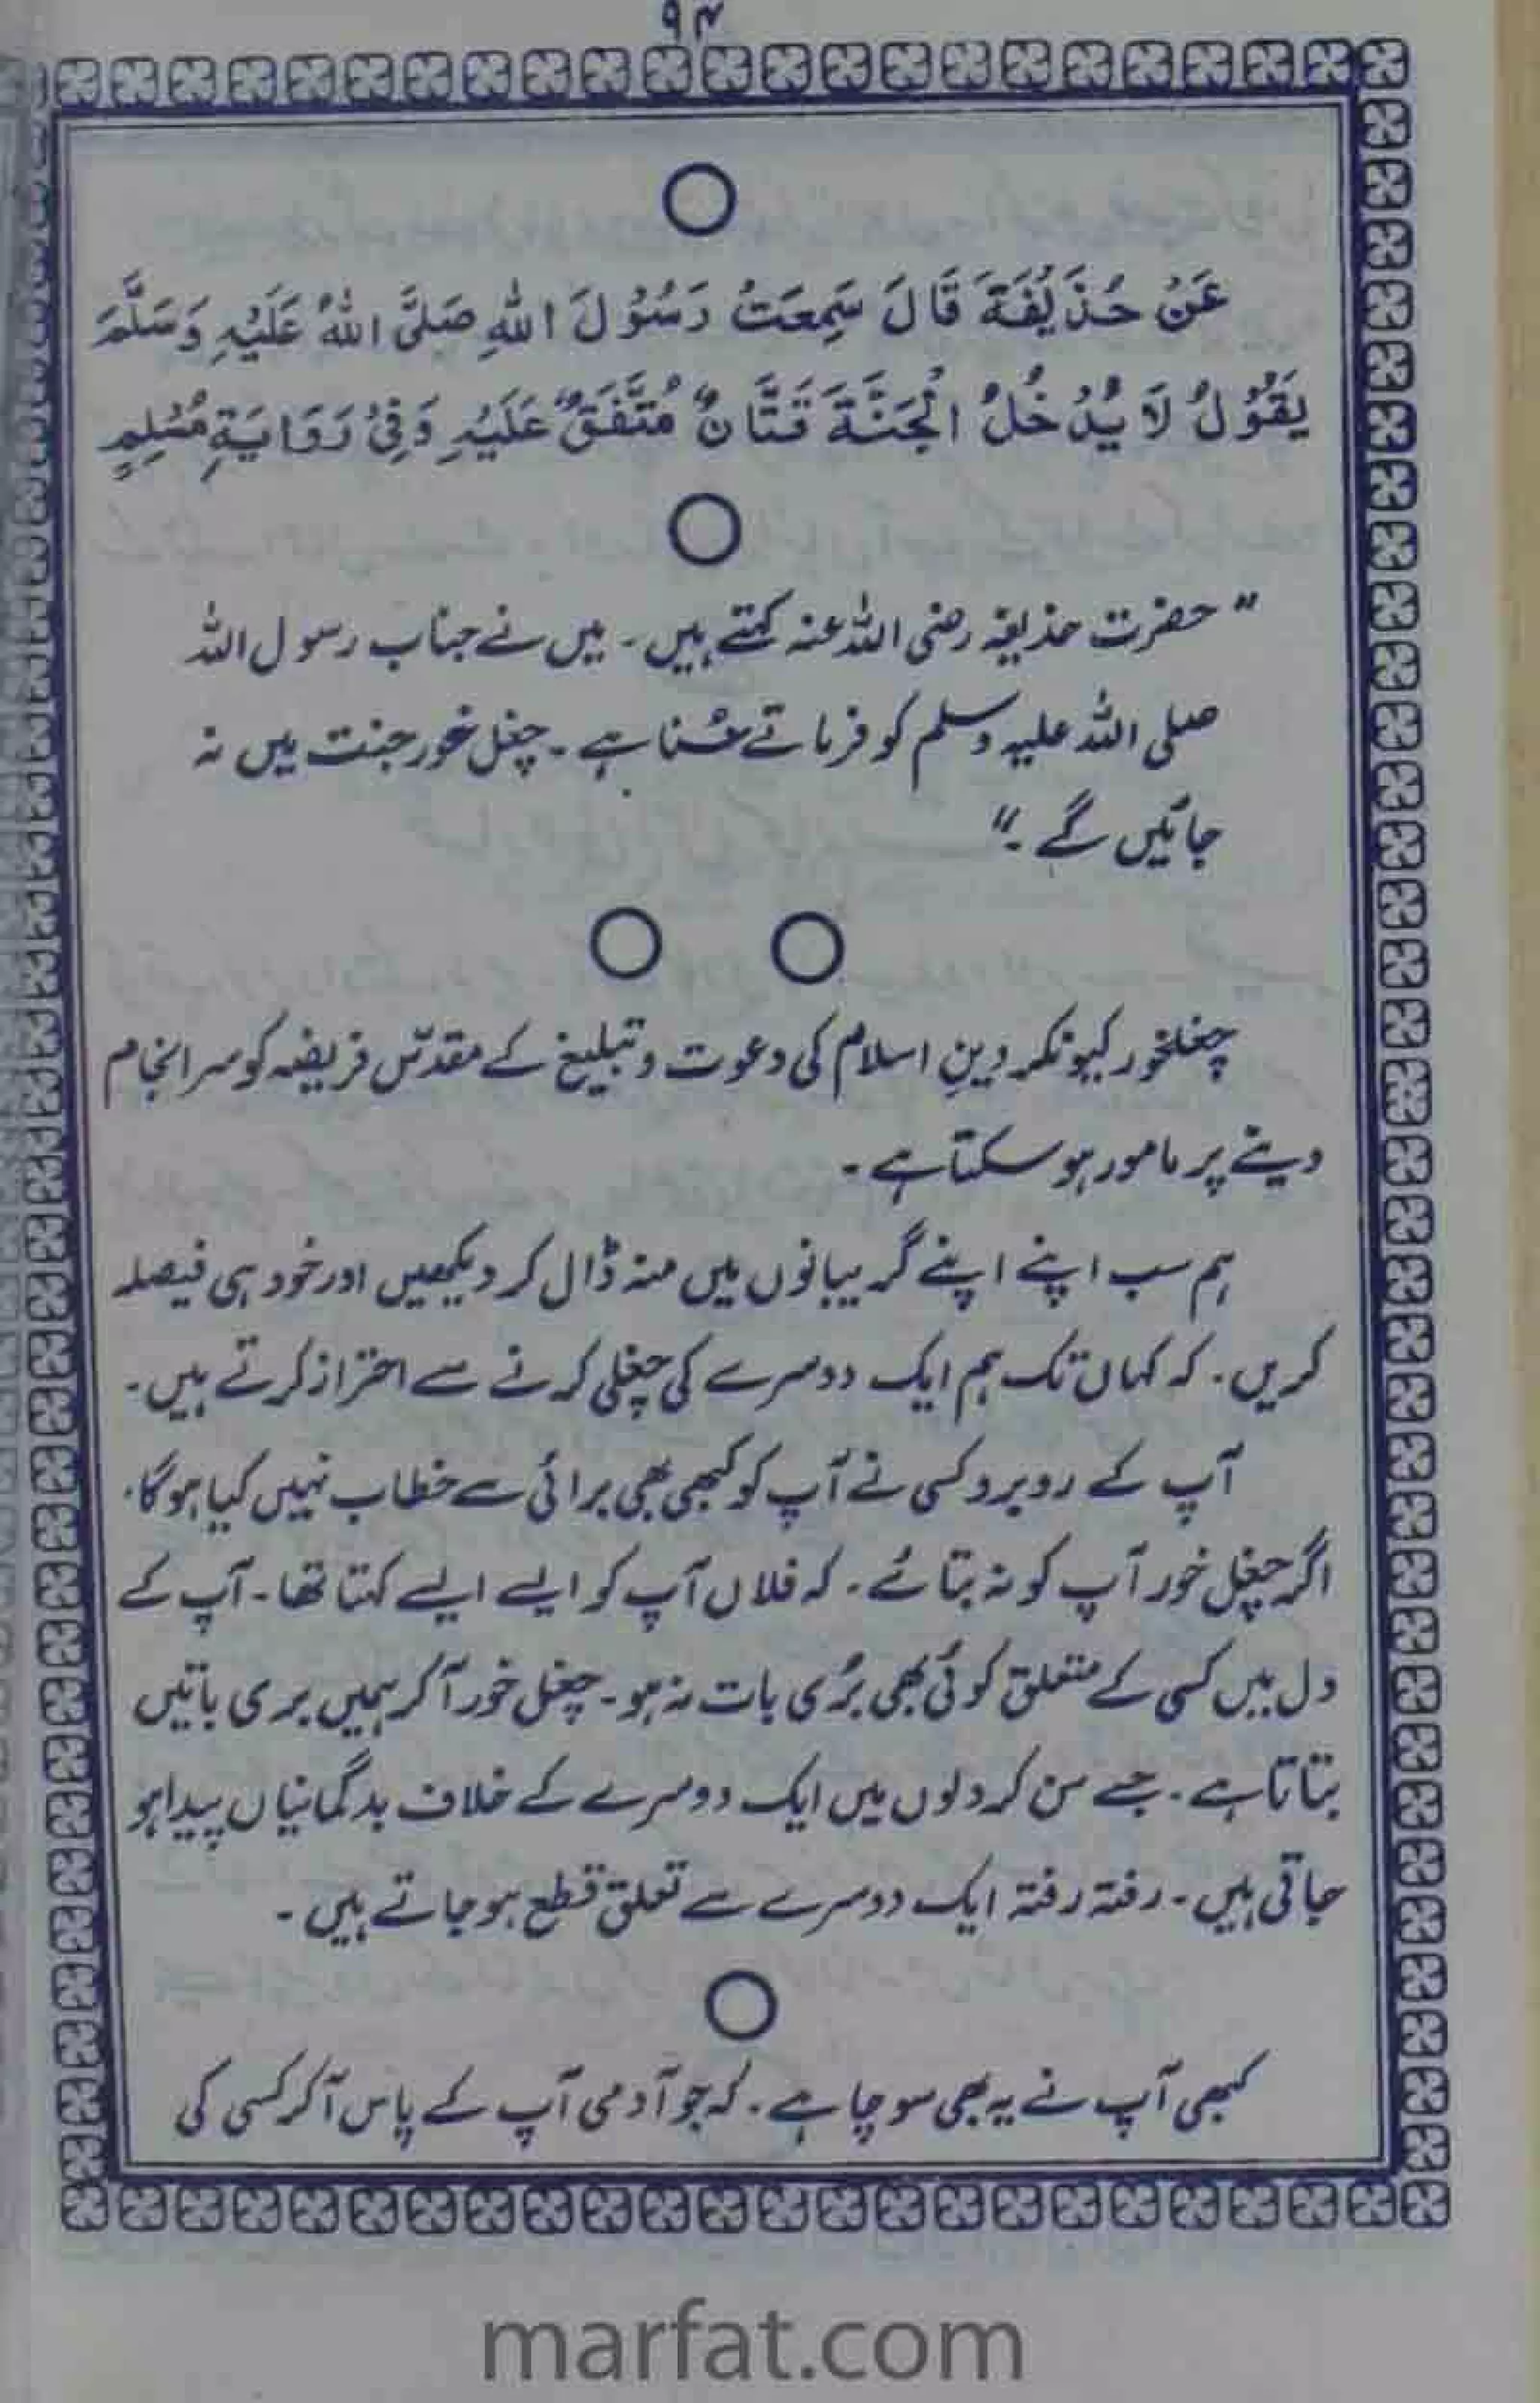 ۹۴
عَنْ حُذَيْفَةَ قَالَ سَمِعْتُ رَسُوْلَ اللهِ صَلَّى اللهُ عَلَيْهِ وَسَلَّمَ
يَقُوْلُ لَا يَدْخُلُ الْجَنَّةَ قَتَّانٌ مُتَّفَقٌ عَلَيْهِ وَفِيْ رَوَايَةِ مُسْلِمٍ
" حضرت حذیفہ رضی اللہ عنہ کہتے ہیں۔ میں نے جناب رسول اللہ
صلی اللہ علیہ وسلم کو فرماتے سُنا ہے۔ چغل خور جنت میں نہ
جائیں گے۔"
چغلخور کیونکر دینِ اسلام کی دعوت و تبلیغ کے مقدّس فریضہ کو سر انجام
دینے پر مامور ہو سکتا ہے۔
ہم سب اپنے اپنے گریبانوں میں منہ ڈال کر دیکھیں اور خود ہی فیصلہ
کریں۔ کہ کہاں تک ہم ایک دوسرے کی چغلی کرنے سے احتراز کرتے ہیں۔
آپ کے روبرو کسی نے آپ کو کبھی بھی برائی سے خطاب نہیں کیا ہوگا۔
اگر چغل خور آپ کو نہ بتائے۔ کہ فلاں آپ کو ایسے ایسے کہتا تھا۔ آپ کے
دل میں کسی کے متعلق کوئی بھی بُری بات نہ ہو۔ چغل خور آ کر ہمیں بری باتیں
بتاتا ہے۔ جسے سن کر دلوں میں ایک دوسرے کے خلاف بدگمانیاں پیدا ہو
جاتی ہیں۔ رفتہ رفتہ ایک دوسرے سے تعلق قطع ہو جاتے ہیں۔
کبھی آپ نے یہ بھی سوچا ہے۔ کہ جو آدمی آپ کے پاس آ کر کسی کی
marfat.com